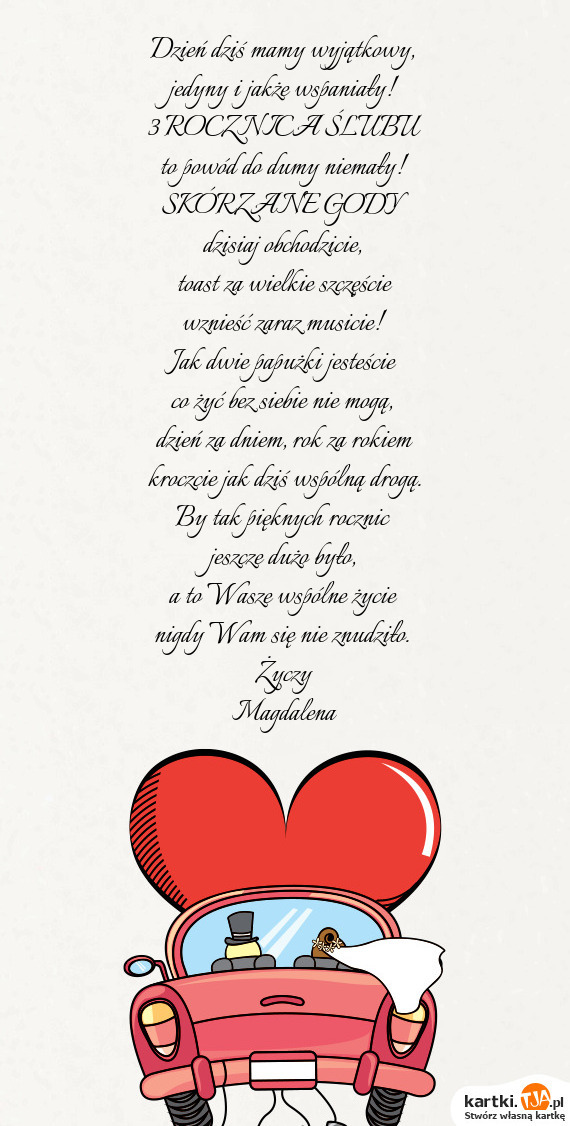 Dzień dziś mamy wyjątkowy,
jedyny i jakże wspaniały!
3 ROCZNICA ŚLUBU
to powód do dumy niemały!
SKÓRZANE GODY
dzisiaj obchodzicie,
toast za wielkie szczęście
wznieść zaraz musicie!
Jak dwie papużki jesteście
co żyć bez siebie nie mogą,
dzień za dniem, rok za rokiem
kroczcie jak dziś wspólną drogą.
By tak pięknych rocznic
jeszcze dużo było,
a to Wasze wspólne życie
nigdy Wam się nie znudziło.
Życzy
Magdalena
kartki.TJA.pl
Stwórz własną kartkę